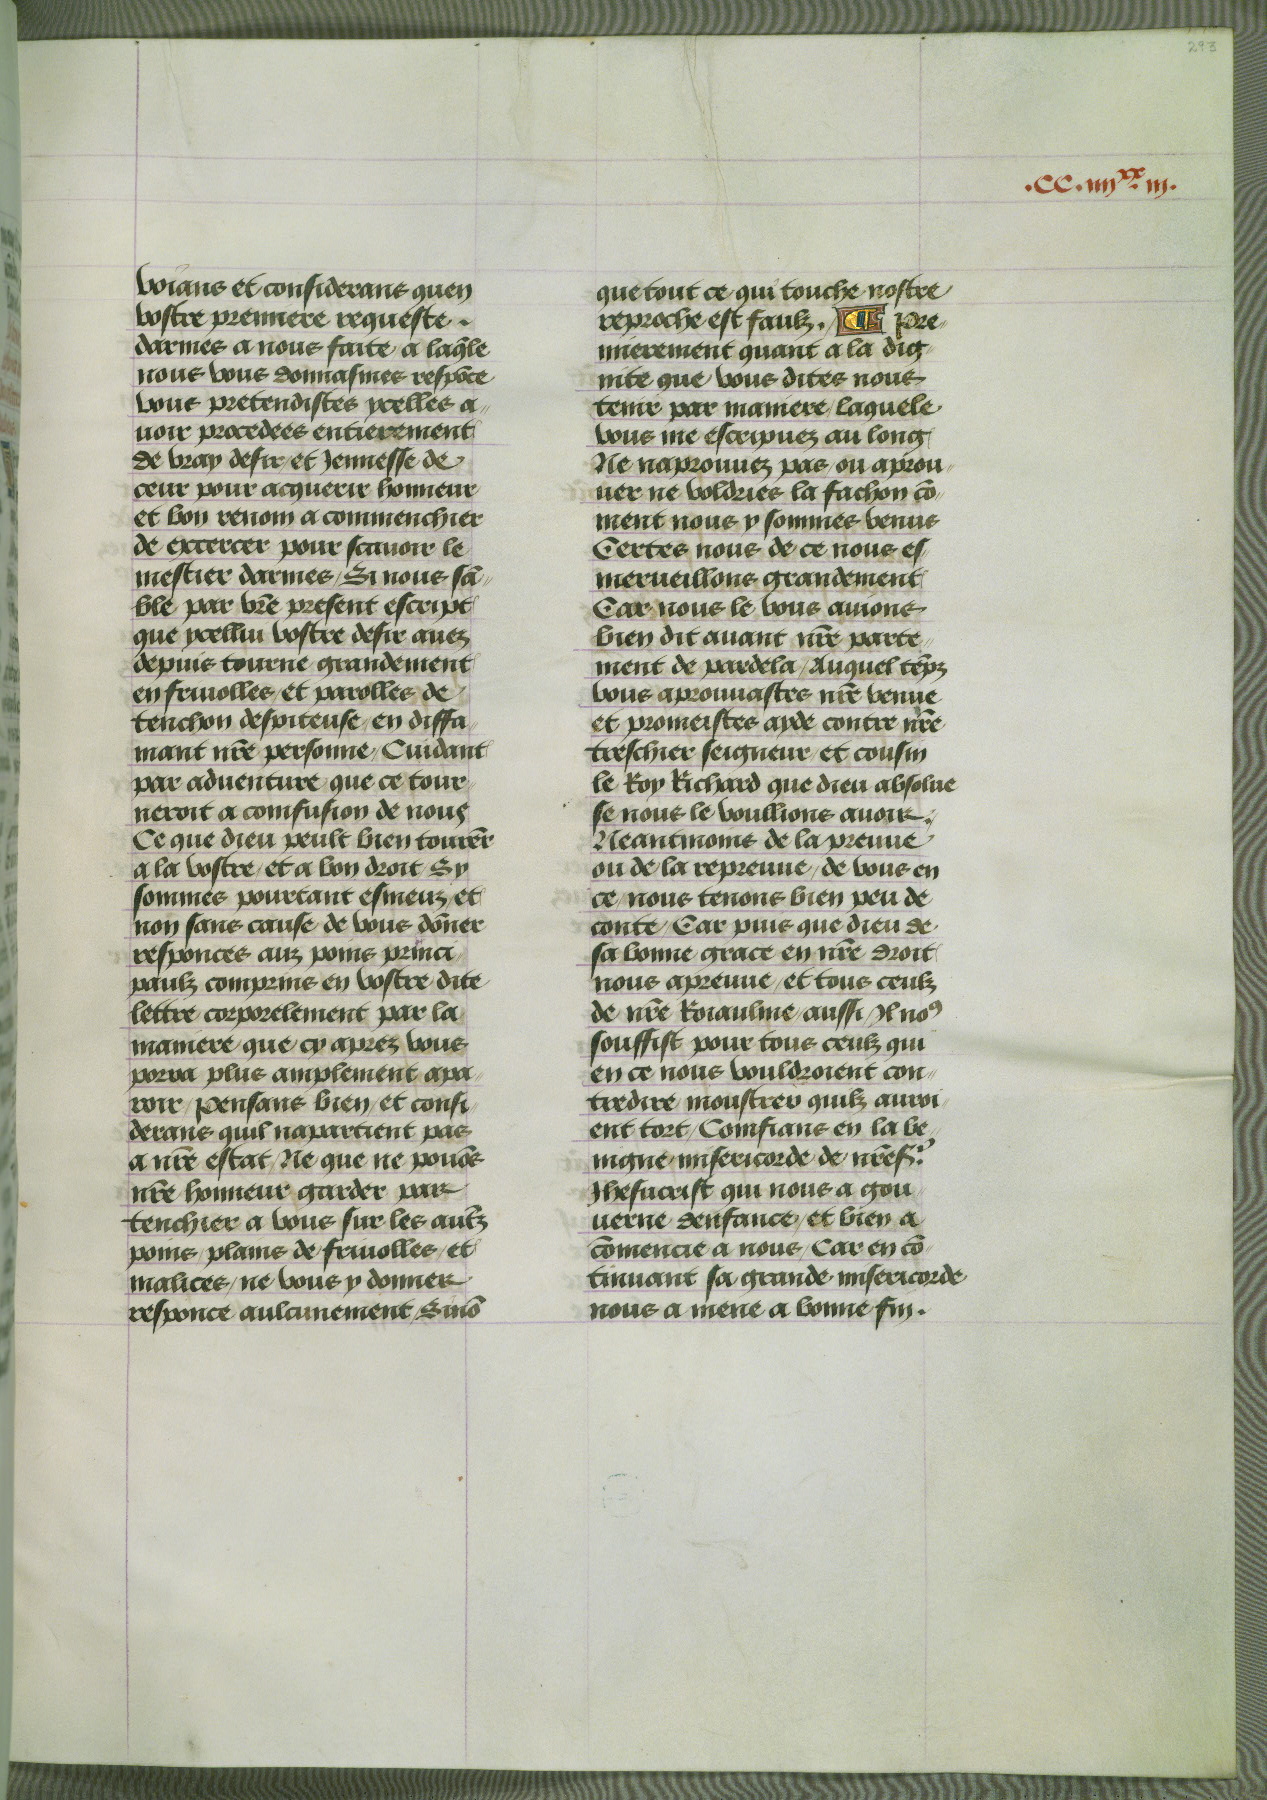 293
.CC.iiiixx.iii.
Voians et considerans quen
vostre premiere requeste .
darmes a nous faite a laq̄le
nous vous donnasmes respōce
vous pretendistes ycelles a〃
uoir procedees entierement
de vray desir et Jennesse de
ceur pour acquerir honneur
et bon renom a commenchier
de excercer pour scauoir le
mestier darmes / Si nous sā〃
ble par vr̄e present escript
que ycellui vostre desir auez
depuis tourne grandement
en friuolles / et parolles de
tenchon despiteuse / en diffa〃
mant nr̄e personne / Cuidant
par aduenture que ce tour〃
neroit a comfusion de nous
Ce que dieu peult bien tourn̄er
a la vostre / et a bon droit Sy
sommes pourtant esmeuz / et
non sans cause de vous dōner
responces auz poins princi〃
paulz comprins en vostre dite
lettre corporelement par la
maniere que cy aprez vous
porra plus amplement apa〃
roir / Pensans bien / et consi〃
derans quil napartient pas
a nr̄e estat / Ne que ne pouōs
nr̄e honneur garder par
tenchier a vous sur les aut̄z
poins / plains de friuolles / et
malices / ne vous y donner
responce aulcunement / Sinō
que tout ce qui touche nostre
reproche est faulz . ¶ Pre〃
mierement quant a la dig〃
nite que vous dites nous
tenir par maniere / laquele
vous me escripuez au long
Ne naprouuez pas / ou aprou〃
uer ne voldries la fachon cō〃
ment nous y sommes venus
Certes nous de ce nous es〃
merueillons grandement
Car nous le vous auions
bien dit auant nr̄e parte〃
ment de pardela / Auquel tēpz
vous aprouuastes nr̄e venue
et promeistes ayde contre nr̄e
treschier seigneur et cousin
le Roy Richard que dieu absolue
se nous le voullions auoir .
Neantmoins de la preuue
ou de la repreuue / de vous en
ce / nous tenons bien peu de
conte / Car puis que dieu de
sa bonne grace en nr̄e droit
nous apreuue / et tous ceulz
de nr̄e Roiaulme / aussi / Il noꝰ
souffist pour tous ceulz qui
en ce nous vouldroient con〃
tredire moustrer quilz auroi〃
ent tort / Comfians en la be〃
nigne misericorde de nr̄e sr̄
Jhesucrist qui nous a gou〃
uerne denfance / et bien a
cōmencie a nous / Car en cō〃
tinuant sa grande misericorde
nous a mene a bonne fin .